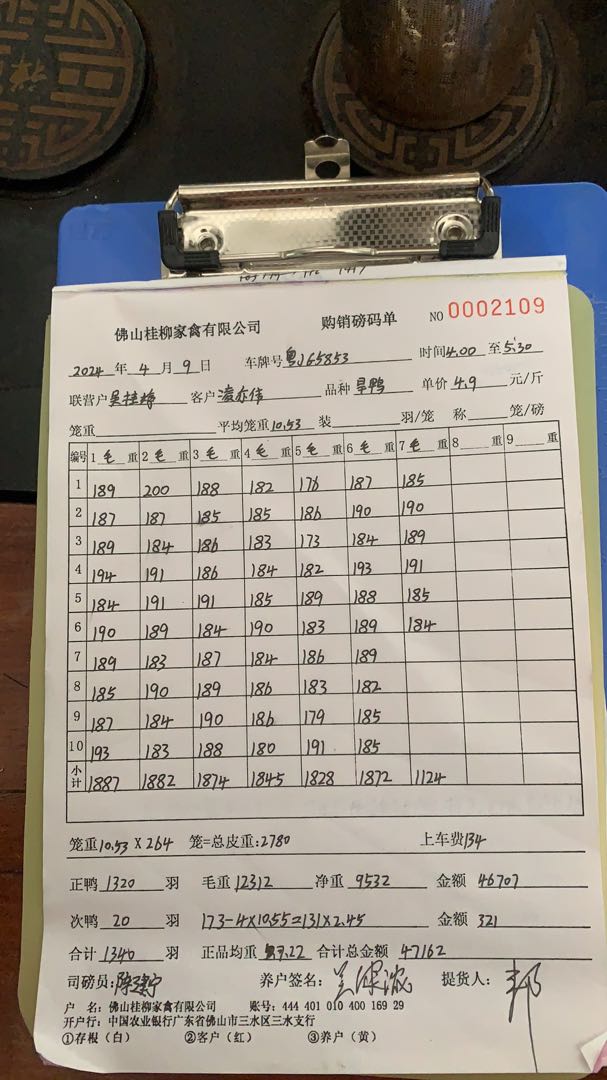 佛山桂柳家禽有限公司 购销磅码单 NO 0002109
2024 年 4 月 9 日 车牌号 粤JG5853 时间 4.00 至 5:30
联营户 客户 凌亦伟 品种 旱鸭 单价 4.9 元/斤
笼重 平均笼重 10.53 装 羽/笼 称 笼/磅
编号 1 毛 重 2 毛 重 3 毛 重 4 毛 重 5 毛 重 6 毛 重 7 毛 重 8 重 9 重
1 189 200 188 182 176 187 185
2 187 187 185 185 186 190 190
3 189 184 186 183 173 184 189
4 194 191 186 184 182 193 191
5 184 191 191 185 189 188 185
6 190 189 184 190 183 189 184
7 189 183 187 184 186 189
8 185 190 189 186 183 182
9 187 184 190 186 179 185
10 193 183 188 180 191 185
小计 1887 1882 1874 1845 1828 1872 1124
笼重 10.53 X 264 笼=总皮重: 2780 上车费 134
正鸭 1320 羽 毛重 12312 净重 9532 金额 46707
次鸭 20 羽 173-4X10.55=131X2.45 金额 321
合计 1340 羽 正品均重 7.22 合计总金额 47162
司磅员: 养户签名: 提货人: 邦
户 名: 佛山桂柳家禽有限公司 账号: 444 401 010 400 169 29
开户行: 中国农业银行广东省佛山市三水区三水支行
①存根（白） ②客户（红） ③养户（黄）